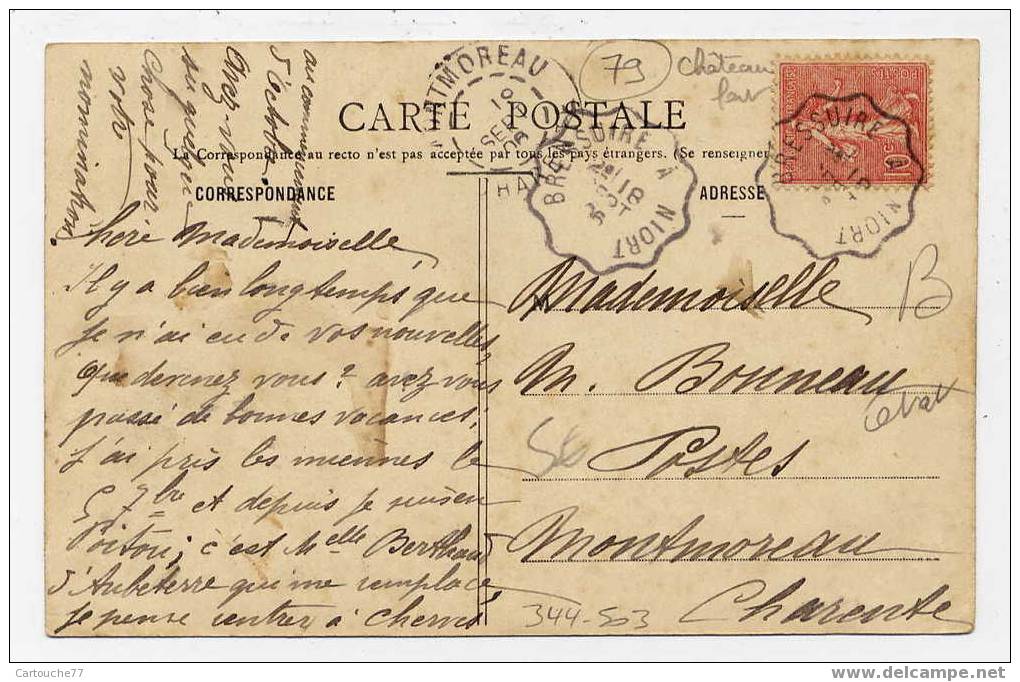 CARTE POSTALE
La Correspondance au recto n'est pas acceptée par tous les pays étrangers. (Se renseigner
CORRESPONDANCE
ADRESSE
MONTMOREAU
10
SEPT
06
BRESSUIRE A NIORT
BRESSUIRE A NIORT
79
Château
Chère Mademoiselle
Il y a bien longtemps que
je n'ai eu de vos nouvelles,
que devenez vous? avez vous
passé de bonnes vacances;
J'ai pris les miennes le
5 7bre et depuis je suis en
Poitou; c'est Melle Berthaud
d'Aubeterre qui me remplace,
je pense rentrer à
au commencement
d'octobre.
Avez-vous
su quelque
chose pour
votre
nomination.
Mademoiselle
M. Bonneau
Postes
Montmoreau
Charente
B
56
344-503
Cartouche77
www.delcampe.net